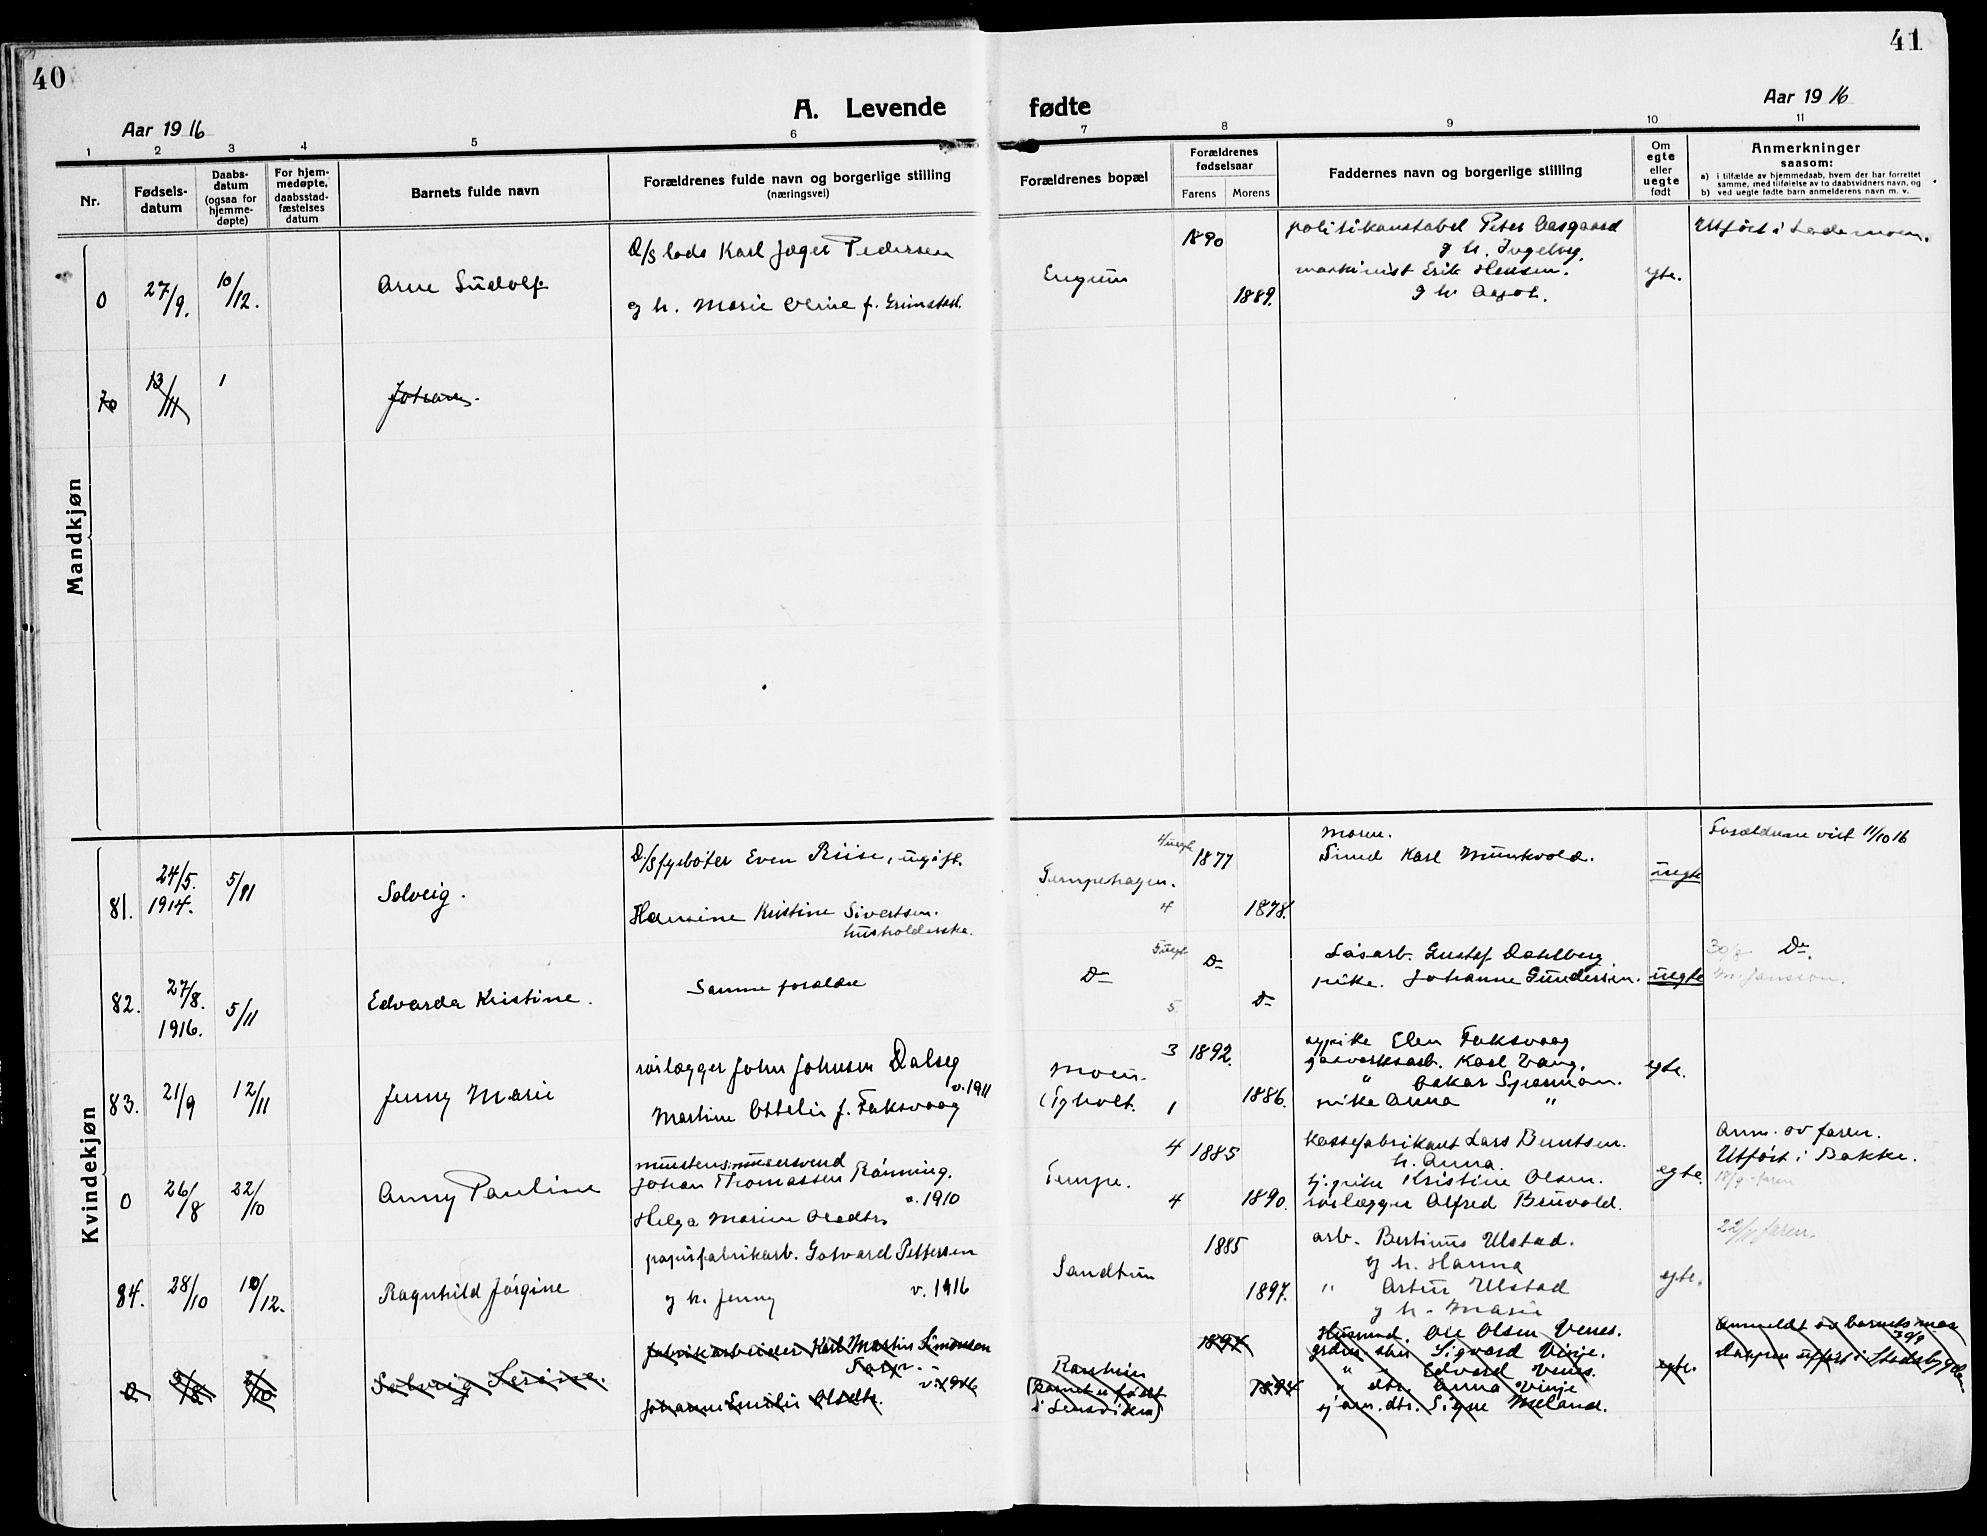 40
41
A. Levende fødte
Aar 1916
Aar 1916
1 2 3 4 5 6 7 8 9 10 11
Nr.
Fødsels-
datum
Daabs-
datum
(ogsaa for
hjemme-
døpte)
For hjem-
medøpte,
daabsstad-
fæstelses
datum
Barnets fulde navn
Forældrenes fulde navn og borgerlige stilling
(næringsvei)
Forældrenes bopæl
Forældrenes
fødselsaar
Farens Morens
Faddernes navn og borgerlige stilling
Om
egte
eller
uegte
født
Anmerkninger
saasom:
a) i tilfælde av hjemmedaab, hvem der har forrettet
samme, med tilføielse av to daabsvidners navn, og
b) ved uegte fødte barn anmelderens navn m. v.
Mandkjøn
0 27/9. 10/12. Arne Ludolf
D/S lods Karl Jæger Pedersen
og h. Marie Oline f. Grimstad.
Engrum
1890
1889.
politikonstabel Peter Aasgaard
g h. Ingeborg.
maskinist Erik Hansen.
g h. Aasol.
egte.
Utført i Lademoen.
70 13/11 1 Johan
Kvindekjøn
81. 24/5. 1914. 5/11 Solveig.
D/S fyrbøter Even Riise, ugift.
Hansine Kristine Sivertsen.
husholderske.
4 uegte
Tempehagen.
4
1877
1878.
Moren.
Smed Karl Munkvold.
uegte
Forældrene vist 11/10 16
82. 27/8. 1916. 5/11 Edvarda Kristine.
Samme forældre
5 uegte
D–
5.
D–
D–
Løsarb. Gustaf Dahlberg.
pike. Johanne Gundersen.
uegte
30/9 D–.
M. Jansson.
83. 21/9 12/11 Jenny Marie
rørlægger John Johnsen Dalseg
v. 1911
Martine Ottelie f. Faksvaag
3
Moen.
(Tyholt. 1
1892.
1886.
sypike Elen Faksvaag
gasverksarb. Karl Vang.
" Oskar Spasman.
pike Anna "
egte.
0 26/8 22/10 Anny Pauline
munstens murersvend
Johan Thomassen Rønning.
v. 1910
Helga Marine Olsdtr
4
Tempe.
4
1885
1890.
kassefabrikant Lars Berntsen.
h. Anna.
tj.pike Kristine Olsen.
rørlægger Alfred Bruvold.
egte.
Anm. av faren.
Utført i Bakke.
18/9 - faren
84. 28/10 10/12. Ragnhild Jørgine
papirfabrikarb. Gotvard Pettersen
g h. Jenny v. 1916
Sandtun
1885
1897.
arb. Bertinus Ulstad.
g h. Hanna
" Artur Ulstad
g h. Marie
egte.
22/11 faren.
0 9/8 2/10 Solveig Serine.
fabrikarbeider Karl Martin Simonsen
v. 1916
Johanne Emilie Olsdtr.
Ranheim
(barnet er født
i Lensviken)
1894
1894
Husmd. Ole Olsen Venes.
grdm. søn Sigvard Vinje.
" Edvard Venes.
" dtr. Anna Vinje
gjørm. dtr. Signe Meland.
egte.
Anmeldt av barnets mor
30/9
Daapen utført i Stadsbygden